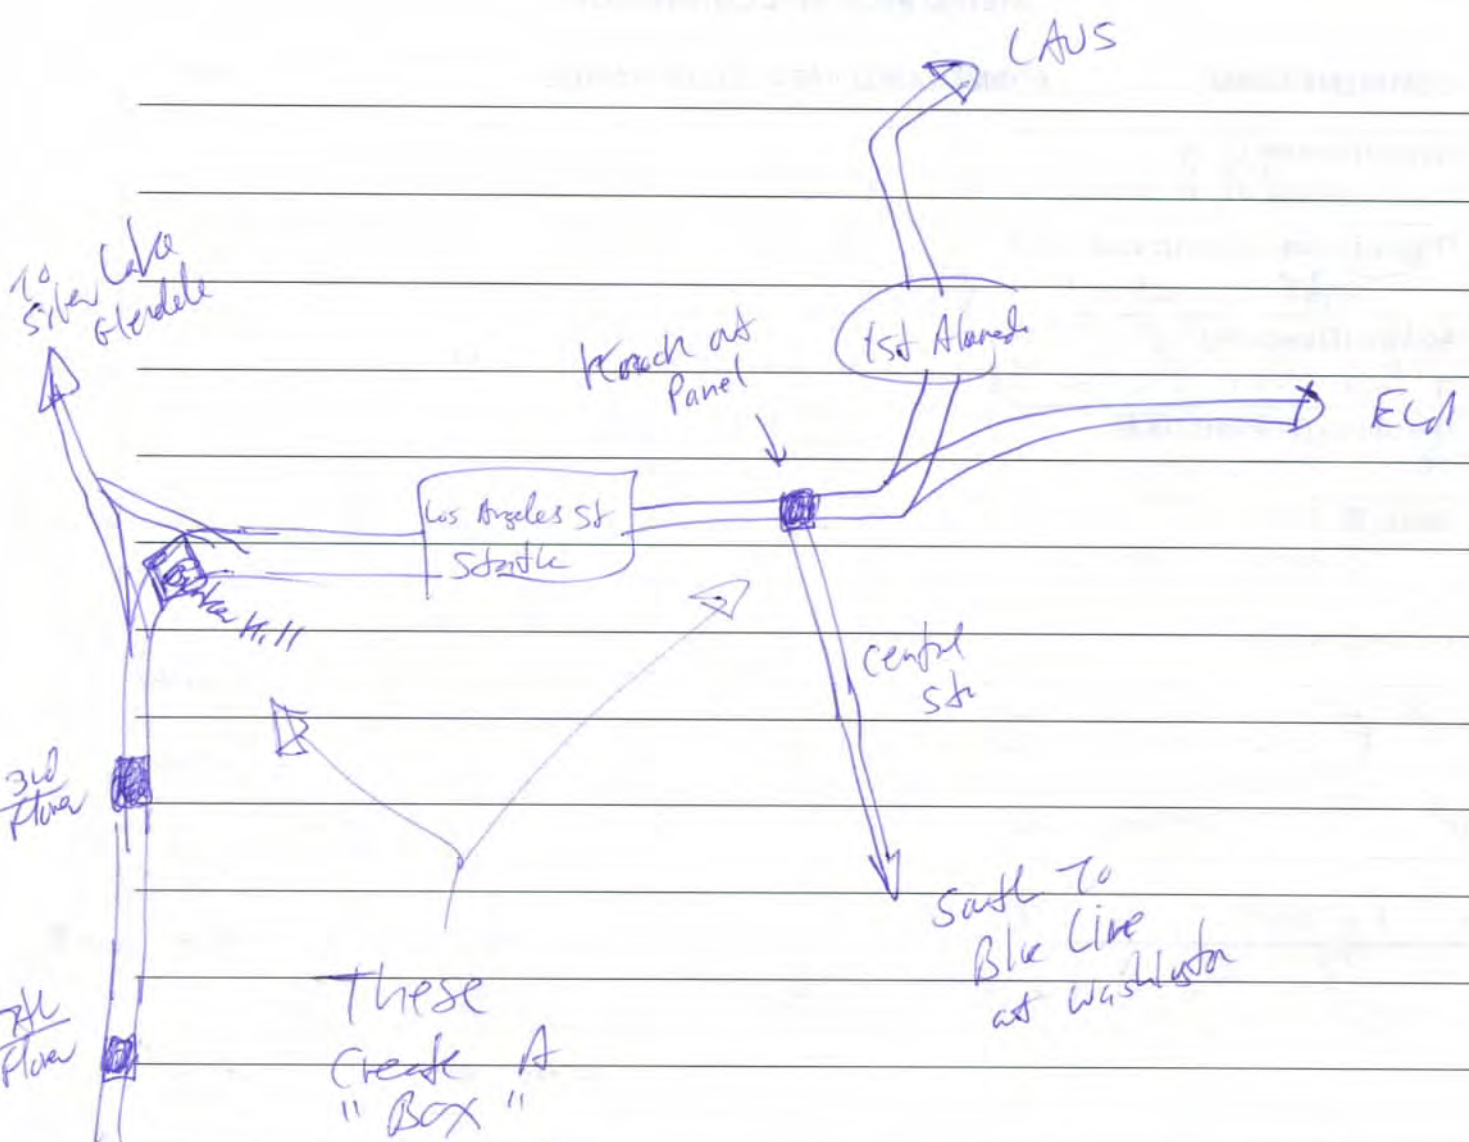 LAUS
To
Silver Lake
Glendale
Knock out
Panel
1st Alameda
ELA
Los Angeles St
Bunker Hill
Central
Str
3rd
Flower
South To
Blue Line
at Washington
7th
Flower
These
Create A
"Box"